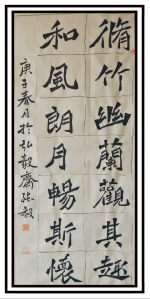 脩竹幽蘭觀其趣
和風朗月暢斯懷
庚子春月於弘毅齋張毅